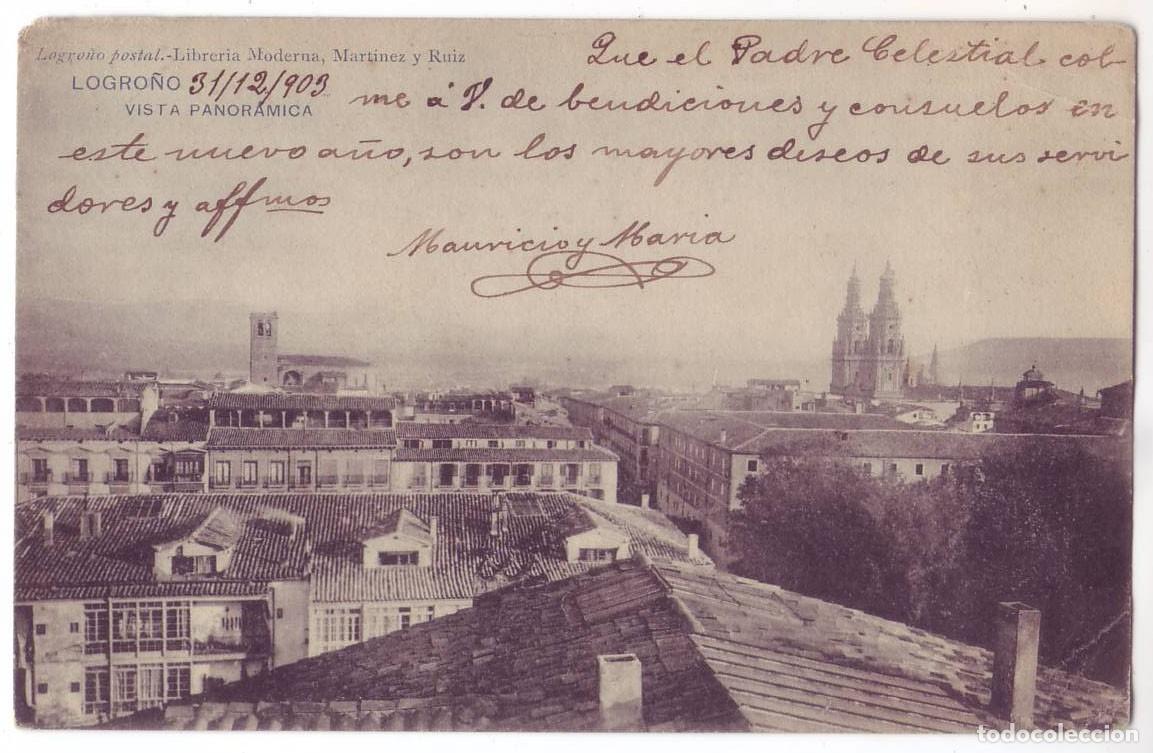 Logroño postal.-Libreria Moderna, Martinez y Ruiz
LOGROÑO 31/12/903
VISTA PANORÁMICA
Que el Padre Celestial col-
me á V. de bendiciones y consuelos en
este nuevo año, son los mayores deseos de sus servi
dores y affmos
Mauricio y Maria
todocoleccion